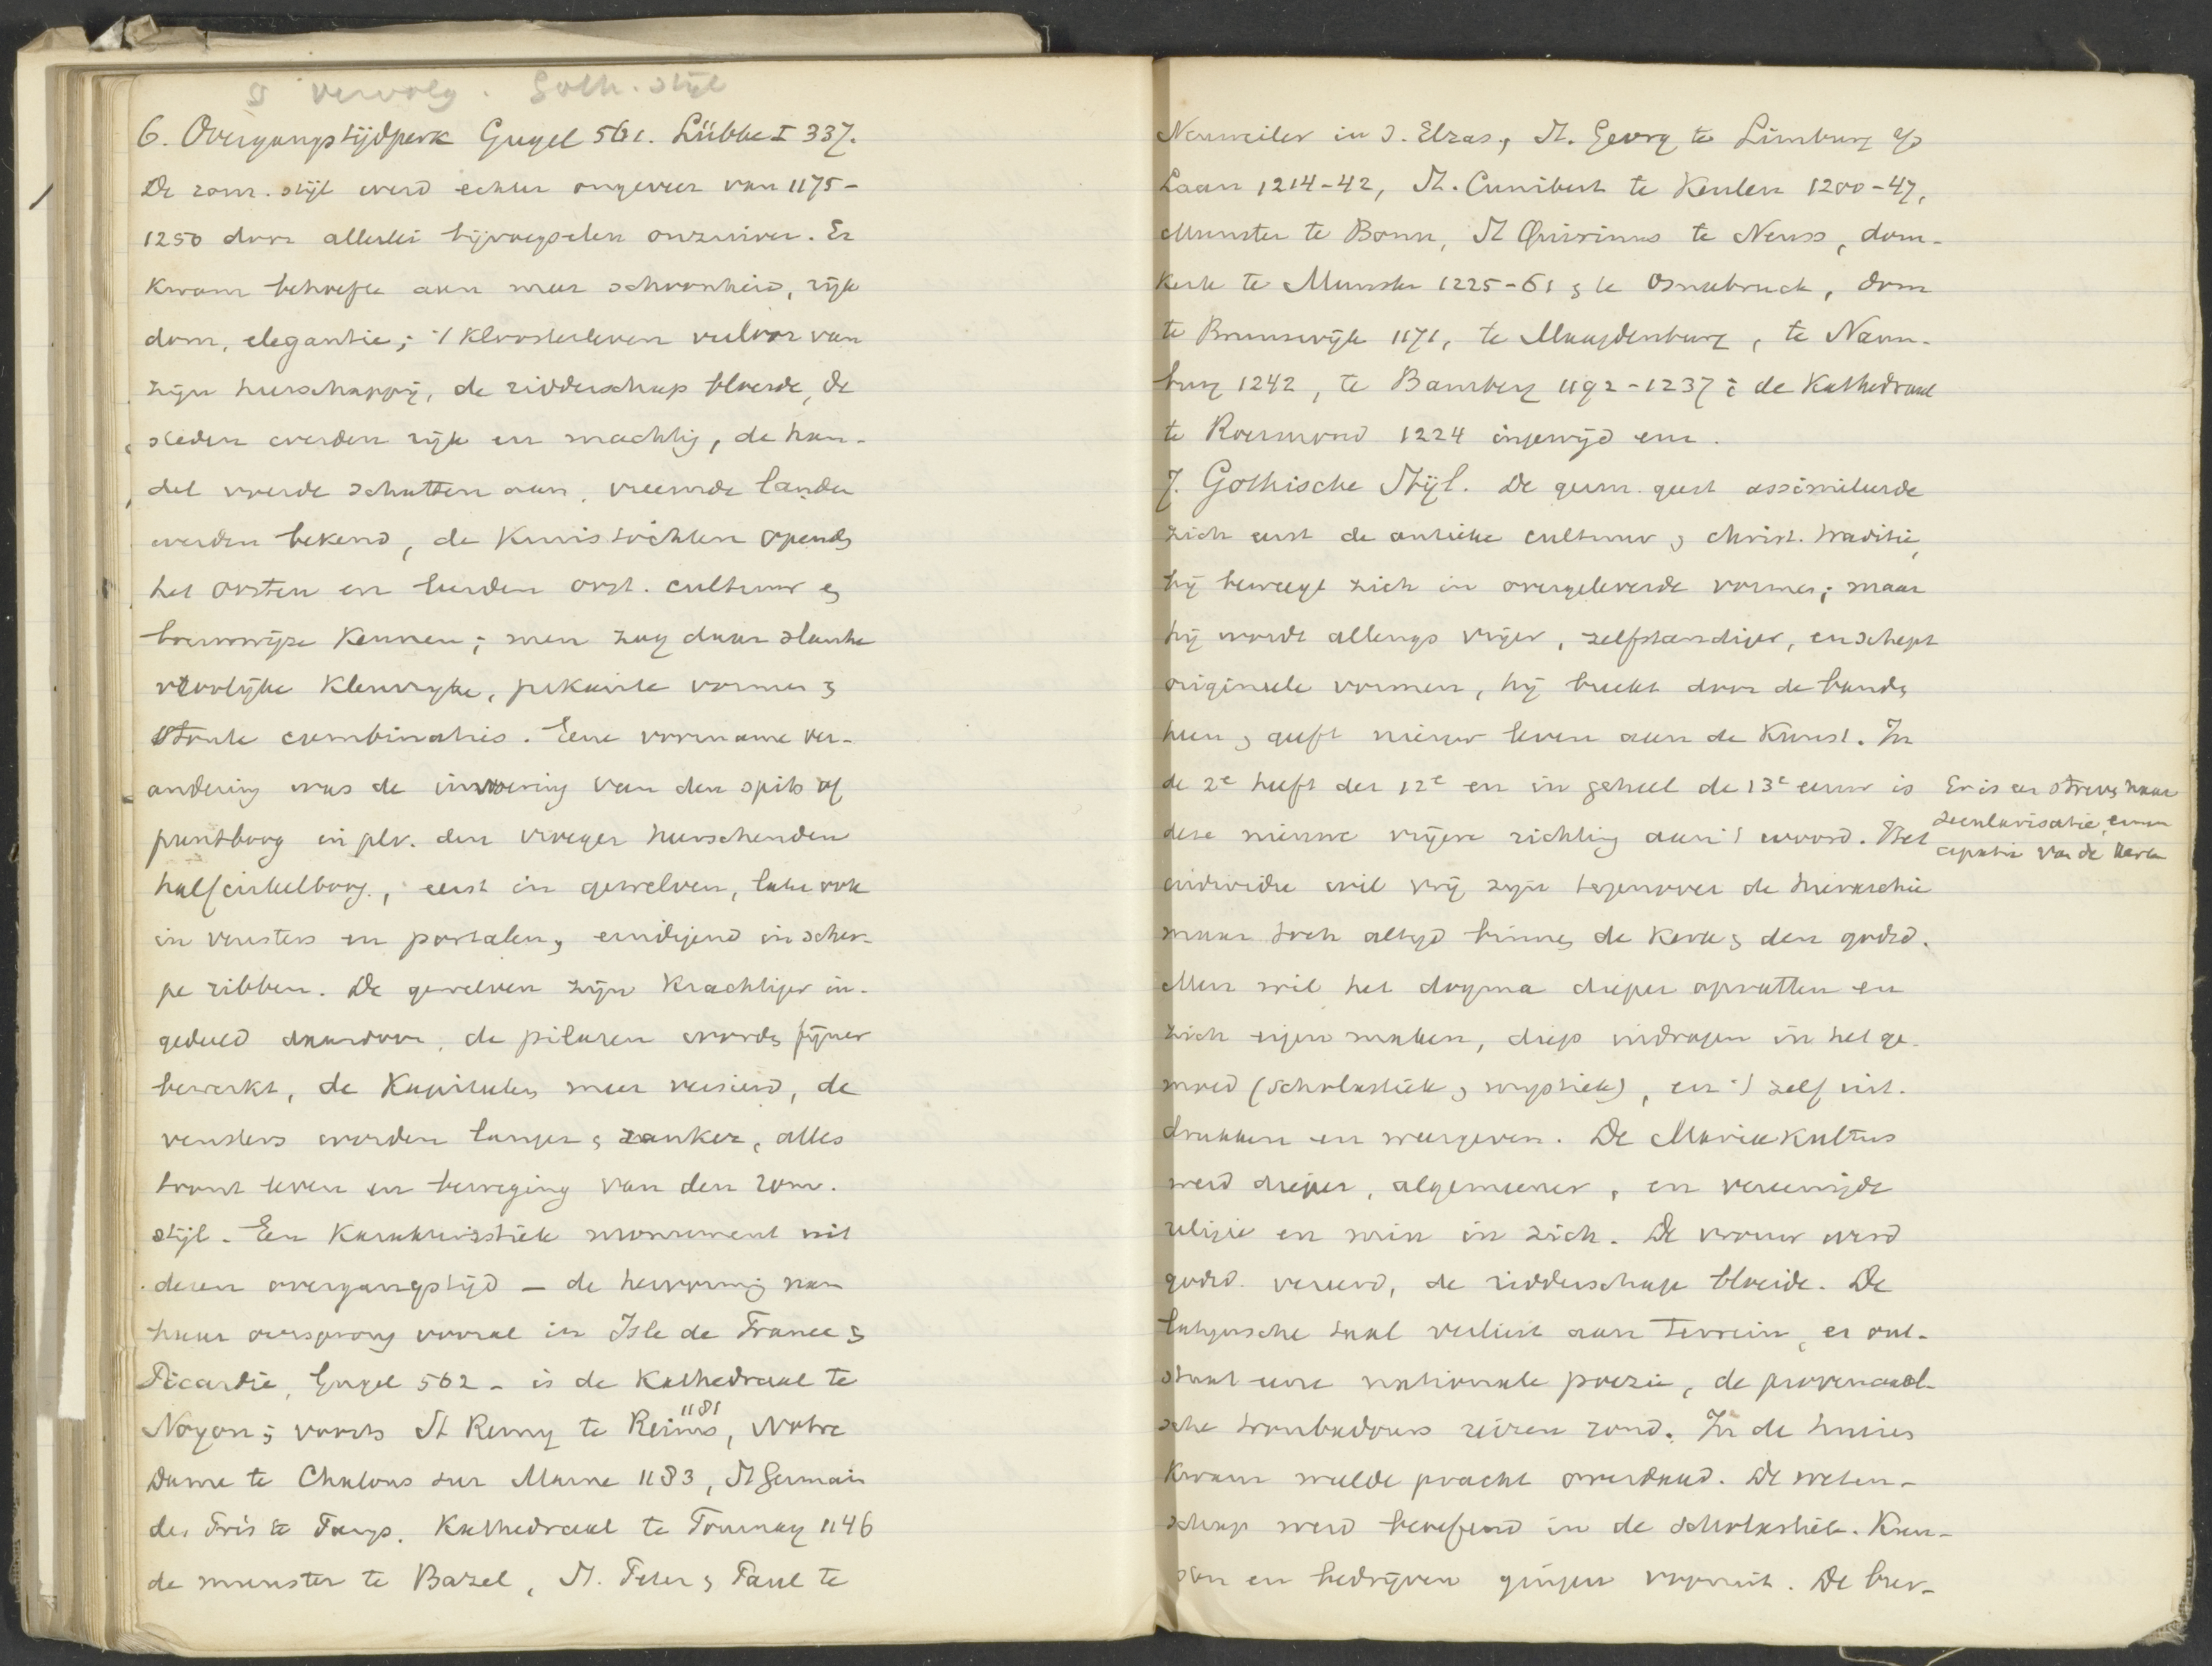 vervolg. Goth. stijl
6. Overgangstijdperk Gugel 561. Lübke I 337.
De rom. stijl werd echter ongeveer van 1175-
1250 door allerlei bijvoegselen onzuiver. Er
kwam behoefte aan meer schoonheid, rijk
dom, elegantie; 't kloosterleven verloor van
zijn heerschappij, de ridderschap bloeide, de
steden werden rijk en machtig, de han-
del voerde schatten aan, vreemde landen
werden bekend, de kruistochten openden
het oosten en leerden oost. cultuur en
bouwwijze kennen; men zag daar slanke
vroolijke kleurrijke, pikante vormen en
stoute combinaties. Eene voorname ver-
andering was de invoering van den spits of
puntboog in plv. den vroeger heerschenden
halfcirkelboog, eerst in gewelven, later ook
in vensters en portalen, eindigend in scher-
pe ribben. De gewelven zijn krachtiger in-
gedeeld daardoor, de pilaren worden fijner
bewerkt, de kapitalen meer versierd, de
vensters worden langer en ranker, alles
toont leven en beweging van den rom.
stijl. Een karakteristiek monument uit
dezen overgangstijd - de hervorming nam
haar oorsprong vooral in Isle de France en
Picardie, Gugel 562 - is de Kathedraal te
Noyon; voorts St Remy te Reims, 1181 Notre
Dame te Chalons sur Marne 1183, St Germain
des Pris te Parijs. Kathedraal te Tournay 1146
de munster te Bazel, St. Peter en Paul te
Neuweiler in d. Elzas, St. Georg te Limburg a/d
Laan 1214-42, St. Cunibert te Keulen 1200-47,
Munster te Bonn, St Quirinus te Neuss, dom-
kerk te Munster 1225-61 en te Osnabruck, dom
te Brunswijk 1171, te Maagdenburg, te Naum-
burg 1242, te Bamberg 1192-1237; de Kathedraal
te Roermond 1224 ingewijd enz.
7. Gothische Stijl. De germ. geest assimileerde
zich eerst de antieke cultuur en christ. traditie,
hij beweegt zich in overgeleverde vormen; maar
hij wordt allengs vrijer, zelfstandiger, en schept
origineele vormen, hij breekt door de banden
heen en geeft nieuw leven aan de kunst. In
de 2e helft der 12e en in geheel de 13e eeuw is
deze nieuwe vrijere richting aan 't woord. Het
Er is een streven naar
secularisatie, eman
cipatie van de kerk
individu wil vrij zijn tegenover de hierarchie
maar toch altijd binnen de kerk en den godsd.
Men wil het dogma dieper opvatten en
zich eigen maken, diep indragen in het ge-
moed (scholastiek en mystiek), en 't zelf uit-
drukken en weergeven. De Mariakultus
werd dieper, algemeener, en vereenigde
religie en min in zich. De vrouw werd
godsd. vereerd, de ridderschap bloeide. De
latijnsche taal verliest aan terrein, er ont-
staat eene nationale poezie, de provencaal-
sche troubadours reizen rond. In de huizen
kwam weelde pracht overdaad. De weten-
schap werd beoefend in de scholastiek. Kun-
sten en bedrijven gingen vooruit. De bur-